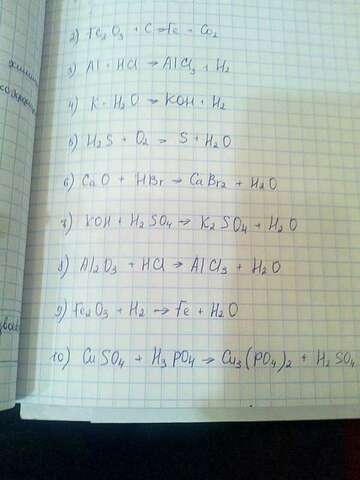 2) Fe₂O₃ + C = Fe - CO₂
3) Al + HCl → AlCl₃ + H₂
4) K + H₂O → KOH + H₂
5) H₂S + O₂ = S + H₂O
6) CaO + HBr → CaBr₂ + H₂O
7) KOH + H₂SO₄ → K₂SO₄ + H₂O
8) Al₂O₃ + HCl → AlCl₃ + H₂O
9) Fe₂O₃ + H₂ → Fe + H₂O
10) CuSO₄ + H₃PO₄ → Cu₃(PO₄)₂ + H₂SO₄